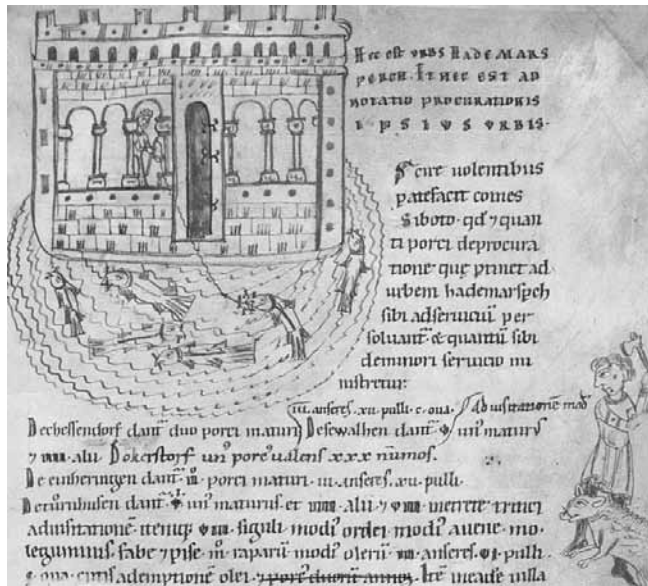 Hec est urbs hademars
perch. It hec est ad
notatio procurationis
ipsius urbis.
Scire uolentibus
patefacit comes
Siboto. qd ⁊ quan
ti porci de procura
tione que ptinet ad
urbem hademarspch
sibi ad seruiciū per
soluant᷑. & quantū sibi
de minori seruicio mi
nistretur.
iii. anseres. xii. pulli. c. oua. Ad uisitationē mad
De chessendorf dant᷑ duo porci maturi De sewalhen dant᷑ un᷒ maturus
⁊ iiii. alii. Dokerstorf un᷒ porc᷒ ualens xxx nūmos.
De einheringen dant᷑ iii. porci maturi. iii. anseres. xii. pulli.
De turnhusen dant᷑ un᷒ maturus et alii ⁊ metrete tritici
ad uisitationē. itemq; siguli. modi᷒ ordei. modi᷒ auene. mo.
leguminis. fabe ⁊ pise. iii. raparū modi᷒ olerū anseres. pulli
c. oua. ademptionē olei. ⁊ porc᷒ duorū annoꝝ. Itē uilla